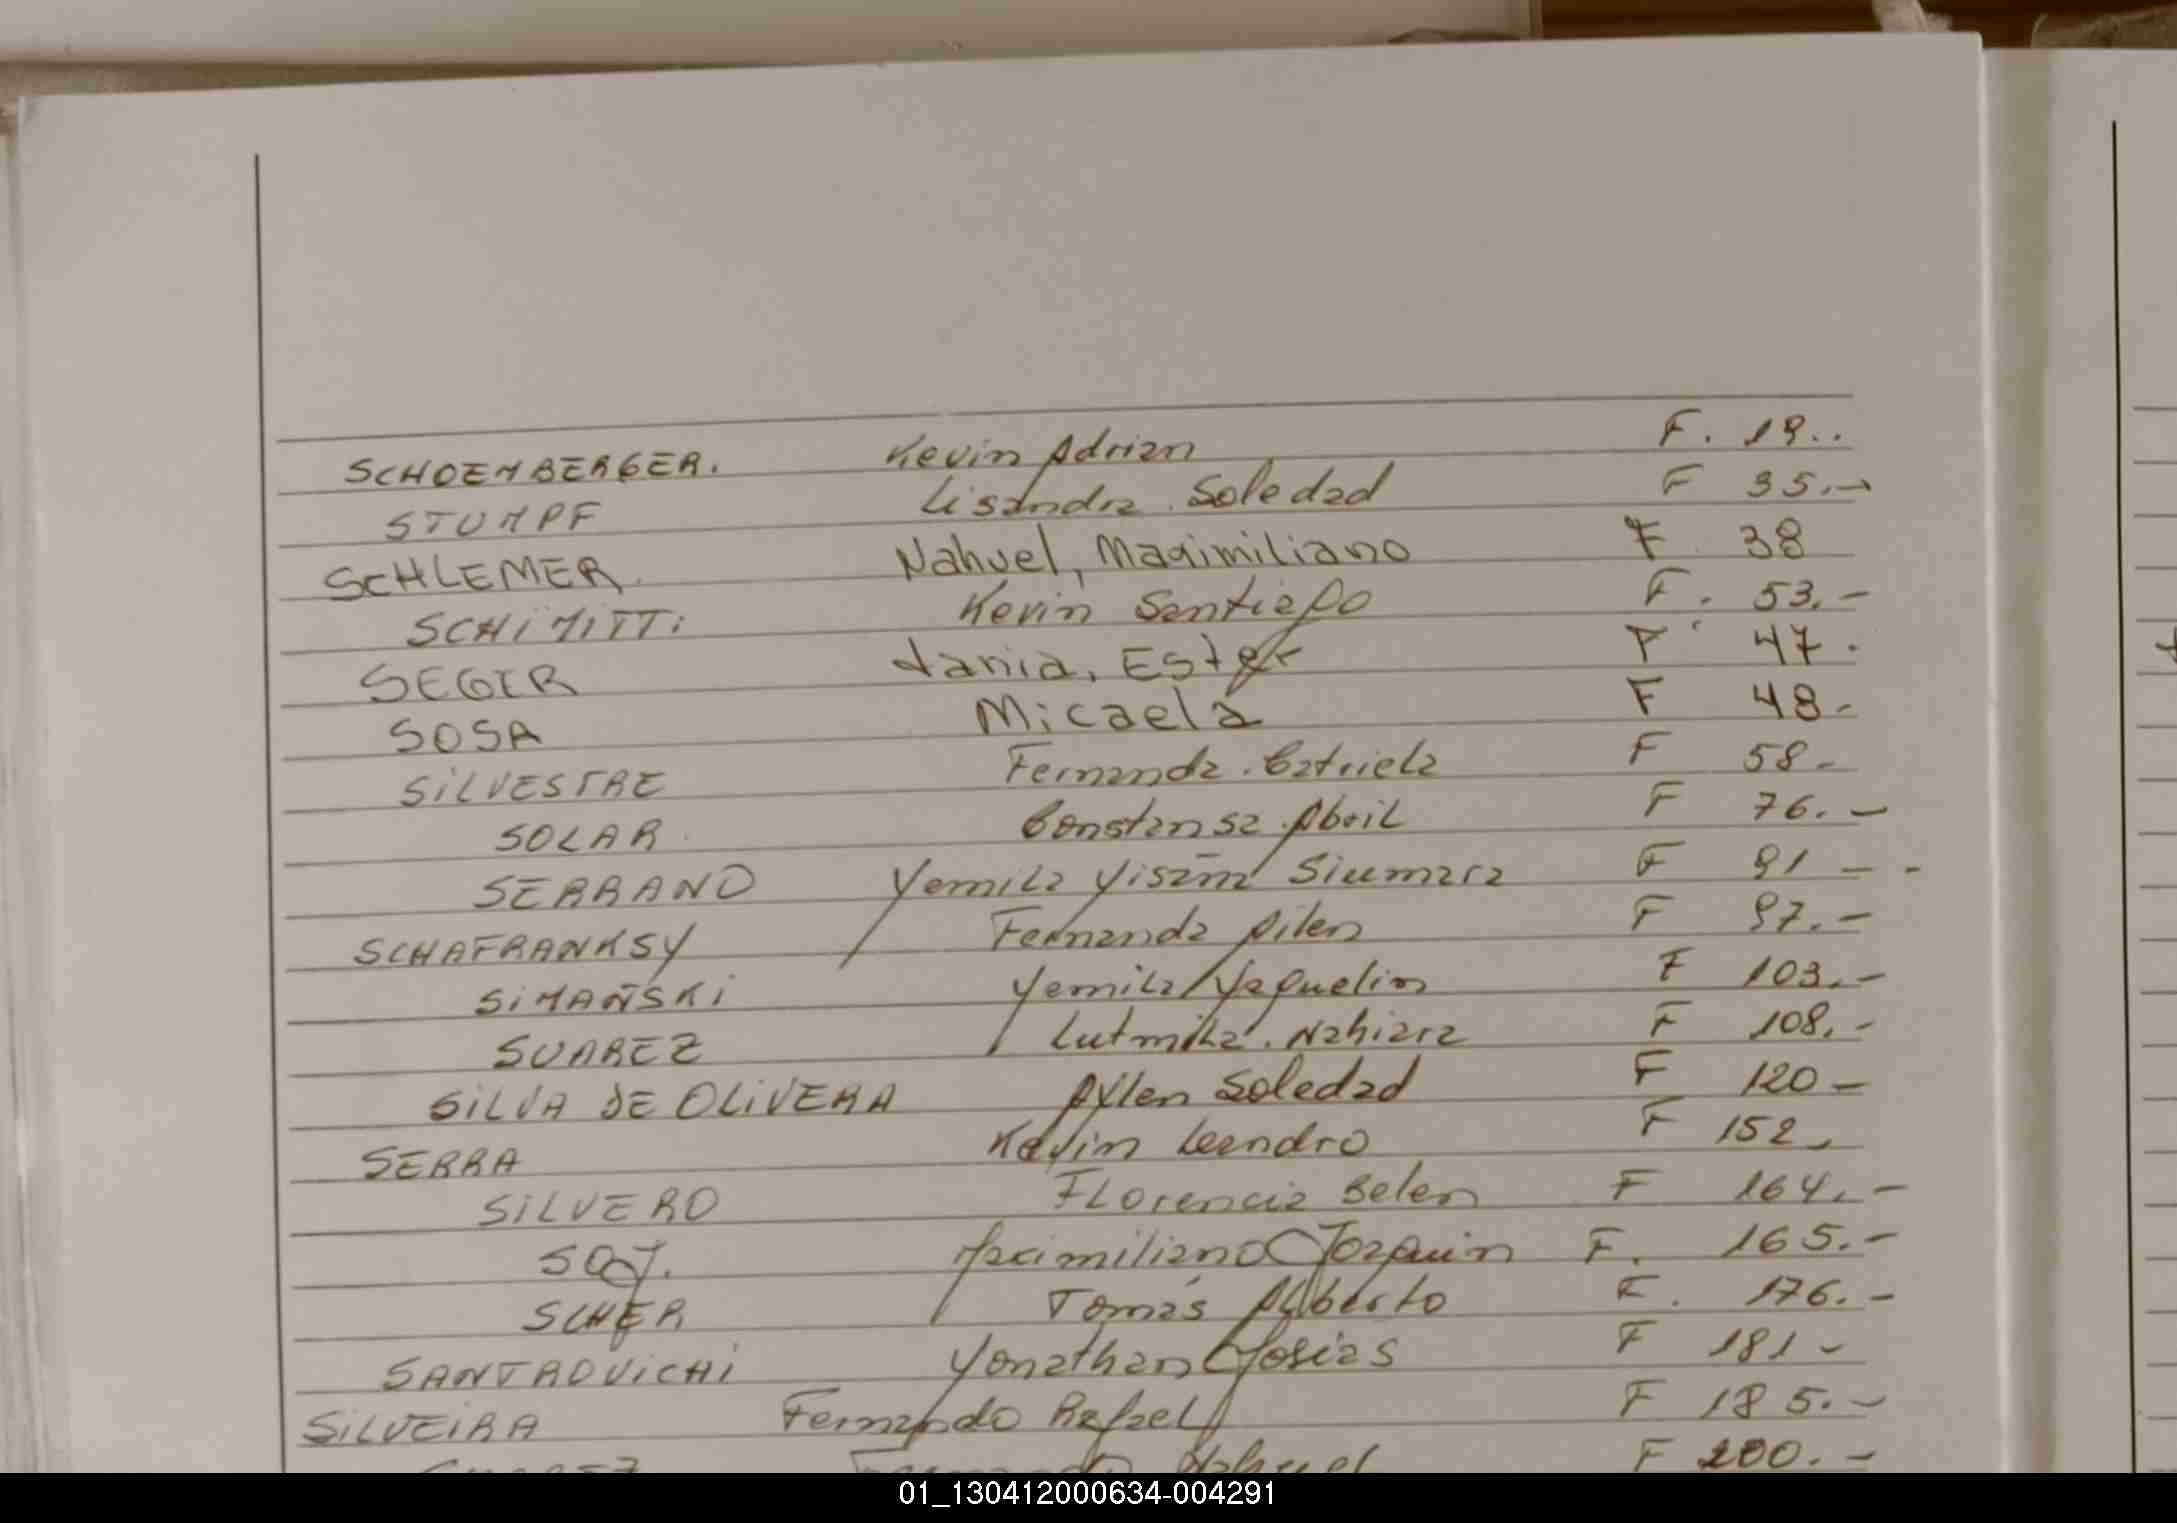 SCHOEMBERGER. Kevin Adrian F. 19..
STUMPF Lisandra Soledad F 35.-
SCHLEMER. Nahuel, Maximiliano F 38
SCHiMITT. Kevin Santiago F. 53.-
SEGER Tania, Ester F 47.
SOSA Micaela F 48.
SiLVESTRE Fernanda Gabriela F 58-
SOLAR Constansa Abril F 76.-
SERRANO Yamila Yisam Siumara F 91 - -
SCHAFRANKSY Fernanda Ailen F 97.-
SiMAÑSKi Yamila Yaquelin F 103.-
SUAREZ Lutmila Nahiara F 108.-
SiLVA DE OLiVERA Aylen Soledad F 120-
SERRA Kevin Leandro F 152.
SiLVERO FLorencia Belen F 164.-
Maximiliano Joaquin F. 165.-
SCHER Tomás Alberto F. 176.-
SANTROViCHi Yonathan Josias F 181-
SiLVEiRA Fernando Rafael F 185.-
Nahuel F 200.-
01_130412000634-004291